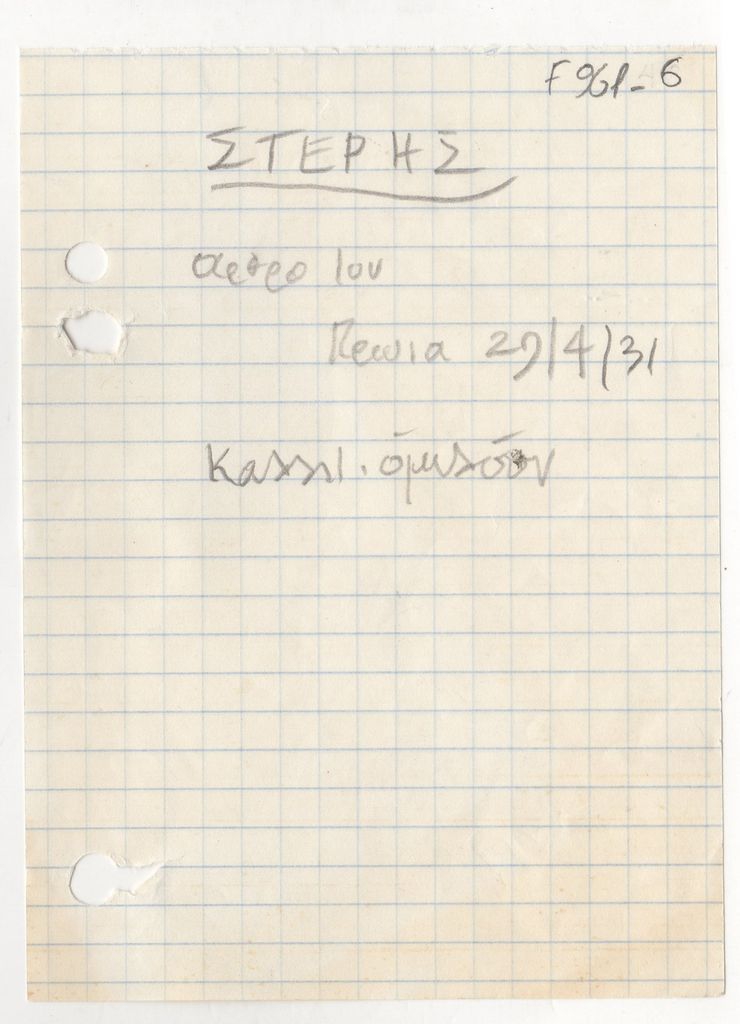 F961-6
ΣΤΕΡΗΣ
αρθρο του
Πρωια 29/4/31
Καλλιτ. όμιλον